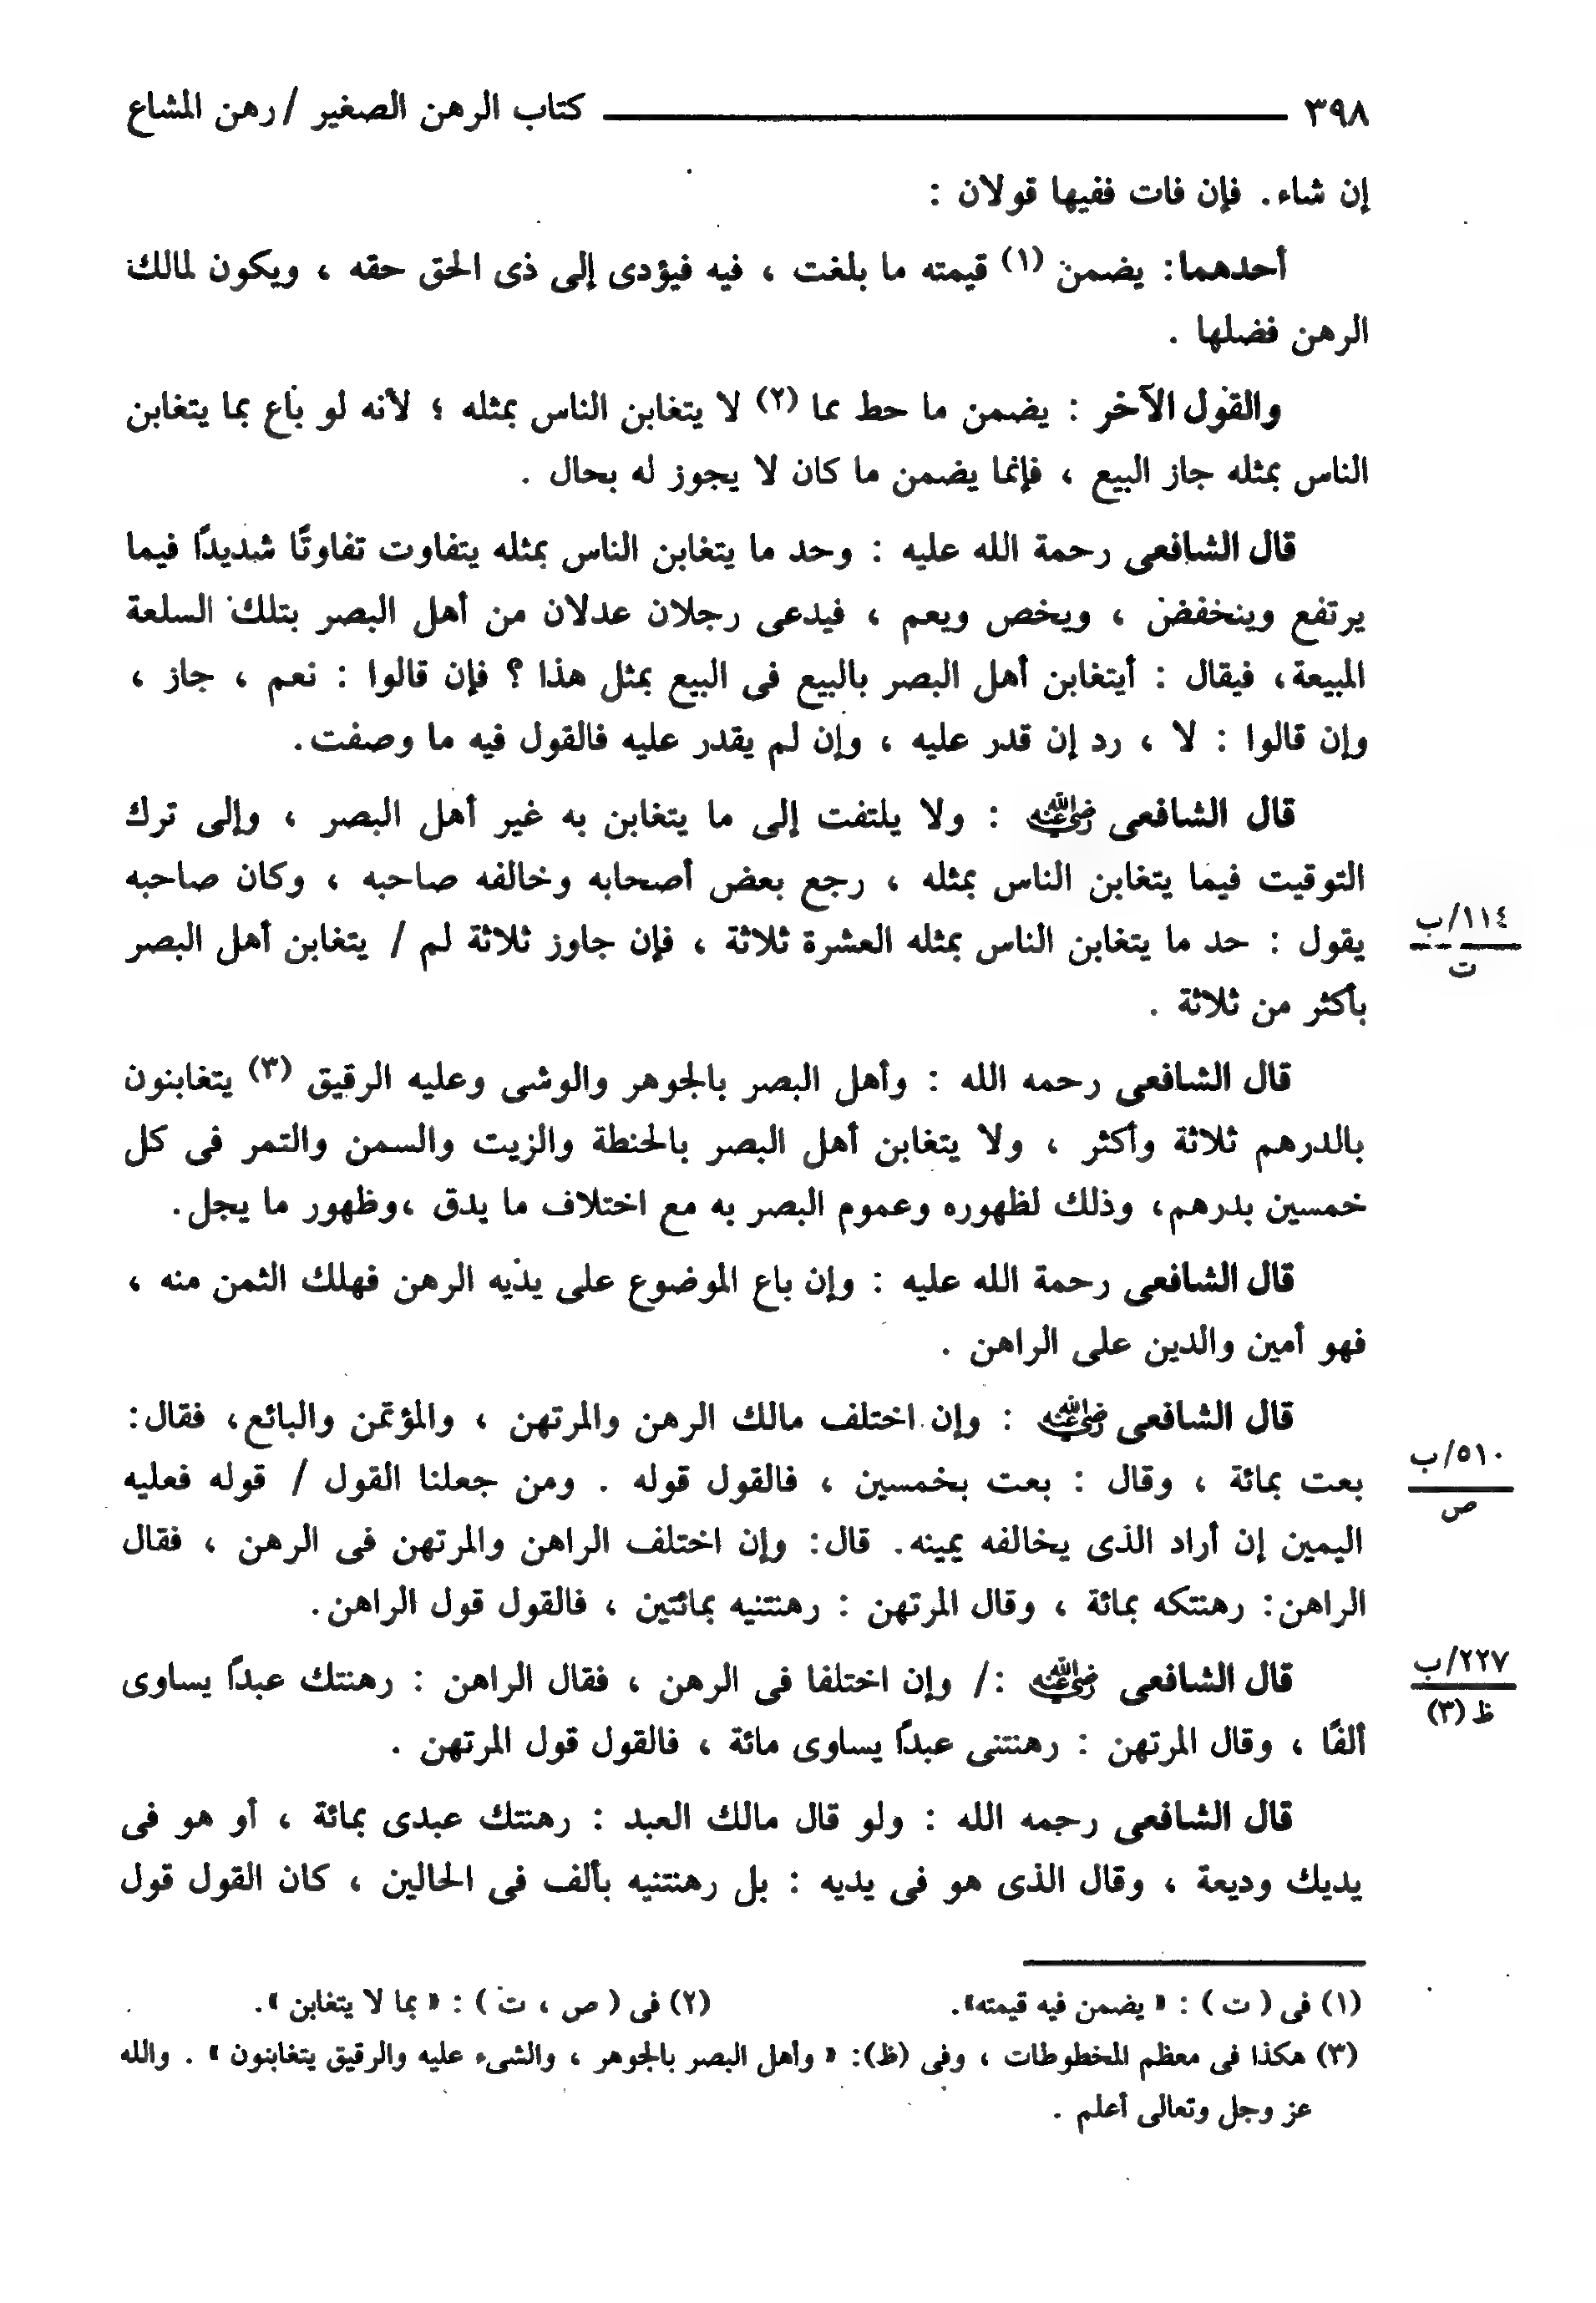 ٣٩٨ كتاب الرهن الصغير / رهن المشاع
إن شاء. فإن فات ففيها قولان :
أحدهما: يضمن (١) قيمته ما بلغت ، فيه فيؤدى إلى ذى الحق حقه ، ويكون لمالك
الرهن فضلها .
والقول الآخر : يضمن ما حط مما (٢) لا يتغابن الناس بمثله ؛ لأنه لو باع بما يتغابن
الناس بمثله جاز البيع ، فإنما يضمن ما كان لا يجوز له بحال .
قال الشافعى رحمة الله عليه : وحد ما يتغابن الناس بمثله يتفاوت تفاوتًا شديدًا فيما
يرتفع وينخفض ، ويخص ويعم ، فيدعى رجلان عدلان من أهل البصر بتلك السلعة
المبيعة، فيقال : أيتغابن أهل البصر بالبيع فى البيع بمثل هذا ؟ فإن قالوا : نعم ، جاز ،
وإن قالوا : لا ، رد إن قدر عليه ، وإن لم يقدر عليه فالقول فيه ما وصفت.
قال الشافعى رضي الله عنه : ولا يلتفت إلى ما يتغابن به غير أهل البصر ، وإلى ترك
التوقيت فيما يتغابن الناس بمثله ، رجع بعض أصحابه وخالفه صاحبه ، وكان صاحبه
١١٤/ب
ت
يقول : حد ما يتغابن الناس بمثله العشرة ثلاثة ، فإن جاوز ثلاثة لم / يتغابن أهل البصر
بأكثر من ثلاثة .
قال الشافعى رحمه الله : وأهل البصر بالجوهر والوشى وعليه الرقيق (٣) يتغابنون
بالدرهم ثلاثة وأكثر ، ولا يتغابن أهل البصر بالحنطة والزيت والسمن والتمر فى كل
خمسين بدرهم، وذلك لظهوره وعموم البصر به مع اختلاف ما يدق ،وظهور ما يجل.
قال الشافعى رحمة الله عليه : وإن باع الموضوع على يديه الرهن فهلك الثمن منه ،
فهو أمين والدين على الراهن .
قال الشافعى رضي الله عنه : وإن اختلف مالك الرهن والمرتهن ، والمؤتمن والبائع، فقال:
٥١٠/ب
ص
بعت بمائة ، وقال : بعت بخمسين ، فالقول قوله . ومن جعلنا القول / قوله فعليه
اليمين إن أراد الذى يخالفه يمينه. قال: وإن اختلف الراهن والمرتهن فى الرهن ، فقال
الراهن: رهنتكه بمائة ، وقال المرتهن : رهنتنيه بمائتين ، فالقول قول الراهن.
٢٢٧/ب
ظ (٣)
قال الشافعى رضي الله عنه :/ وإن اختلفا فى الرهن ، فقال الراهن : رهنتك عبدًا يساوى
ألفًا ، وقال المرتهن : رهنتنى عبدًا يساوى مائة ، فالقول قول المرتهن .
قال الشافعى رحمه الله : ولو قال مالك العبد : رهنتك عبدى بمائة ، أو هو فى
يديك وديعة ، وقال الذى هو فى يديه : بل رهنتنيه بألف فى الحالين ، كان القول قول
(١) فى ( ت ) : « يضمن فيه قيمته».
(٢) فى ( ص ، ت ) : « بما لا يتغابن ».
(٣) هكذا فى معظم المخطوطات ، وفى (ظ): « وأهل البصر بالجوهر ، والشىء عليه والرقيق يتغابنون » . والله
عز وجل وتعالى أعلم .